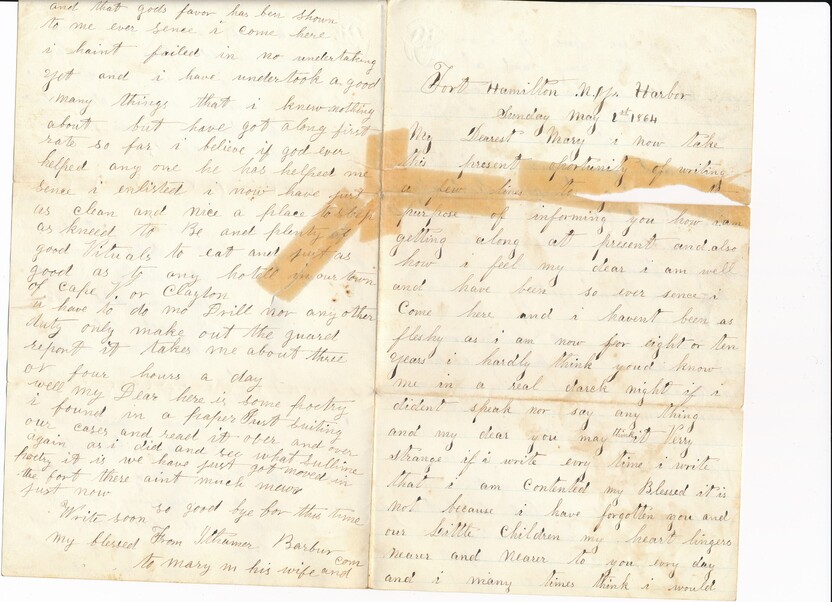 Fort Hamilton N.Y. Harbor
Sunday May 1st 1864
My Dearest Mary i now take
this present oportunity of writing
a few lines to
purpose of informing you how i am
getting along at present and also
how i feel my dear i am well
and have been so ever sence i
Come here and i havent been as
fleshy as i am now for eight or ten
years i hardly think youd know
me in a real darck night if i
dident speak nor say any thing
and my dear you may think it Very
strange if i write evry time i write
that i am Contented my Blessed it is
not because i have forgotten you and
our Little Children my heart lingers
nearer and Nearer to you evry day
and i many times think i would
and that gods favor has ben shown
to me ever sence i come here
i haint failed in no undertaking
yet and i have undertook a good
many things that i knew nothing
about but have got along first
rate so far i believe if god ever
helped any one he has helped me
sence i enlisted i now have just
as clean and nice a place to sleep
as kneed to Be and plenty of
good Vituals to eat and just as
good as to any hotell in our town
of Cape V or Clayton
i have to do no Drill nor any other
duty only make out the guard
report it takes me about three
or four hours a day
well my Dear here is some poetry
i found in a paper Just suiting
our cases and read it over and over
again as i did and see what sublime
poetry it is we have just got moved in
the fort there aint much news
just now
so good bye for this time
Write soon
my blessed From Ithamer Barbur
to mary m his wife and com